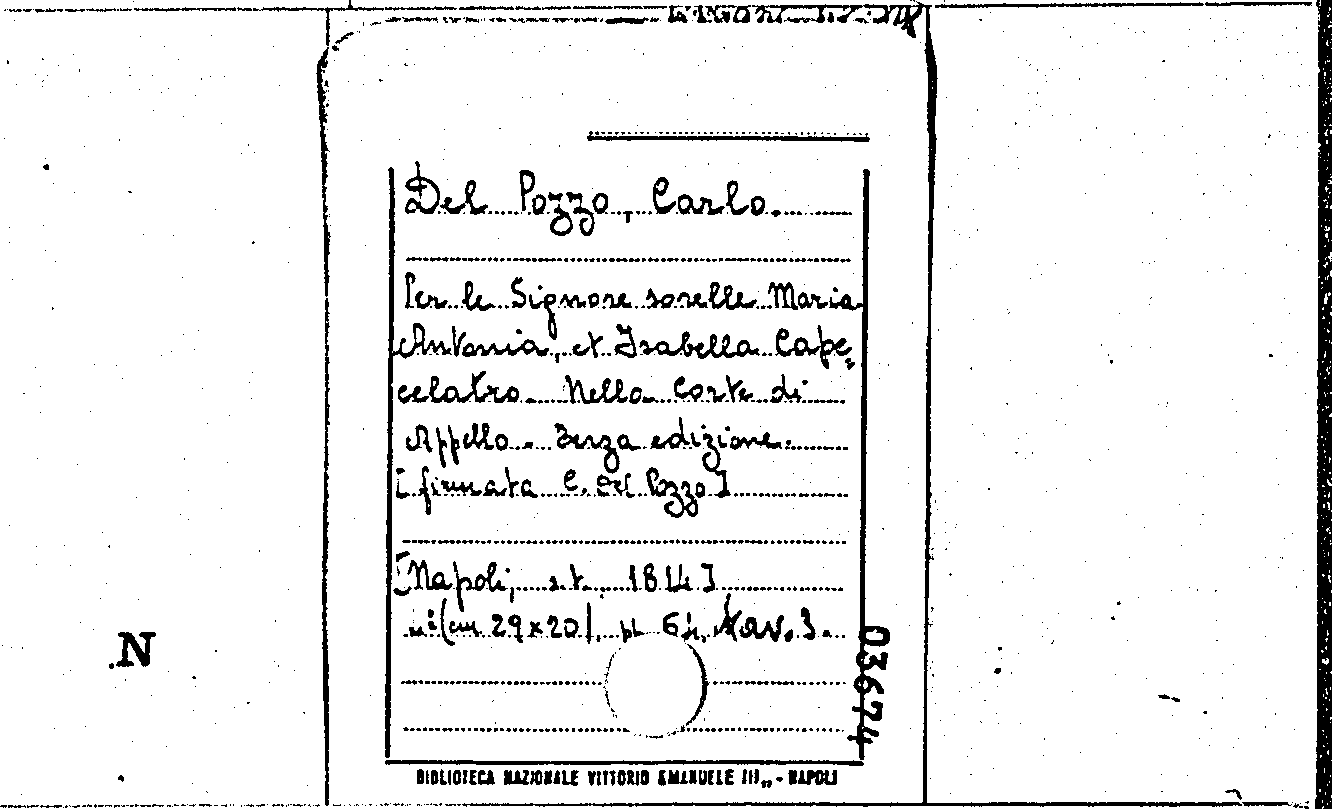 Del Pozzo, Carlo.
Per le Signore sorelle Maria
Antonia, et Isabella Cape=
celatro. Nella Corte di
Appello. Terza edizione.
[firmata C. Del Pozzo]
[Napoli, s.t., 1814]
(cm 29x20), pp. 64, tav. 3.
03674
N
BIBLIOTECA NAZIONALE VITTORIO EMANUELE III„ - NAPOLI